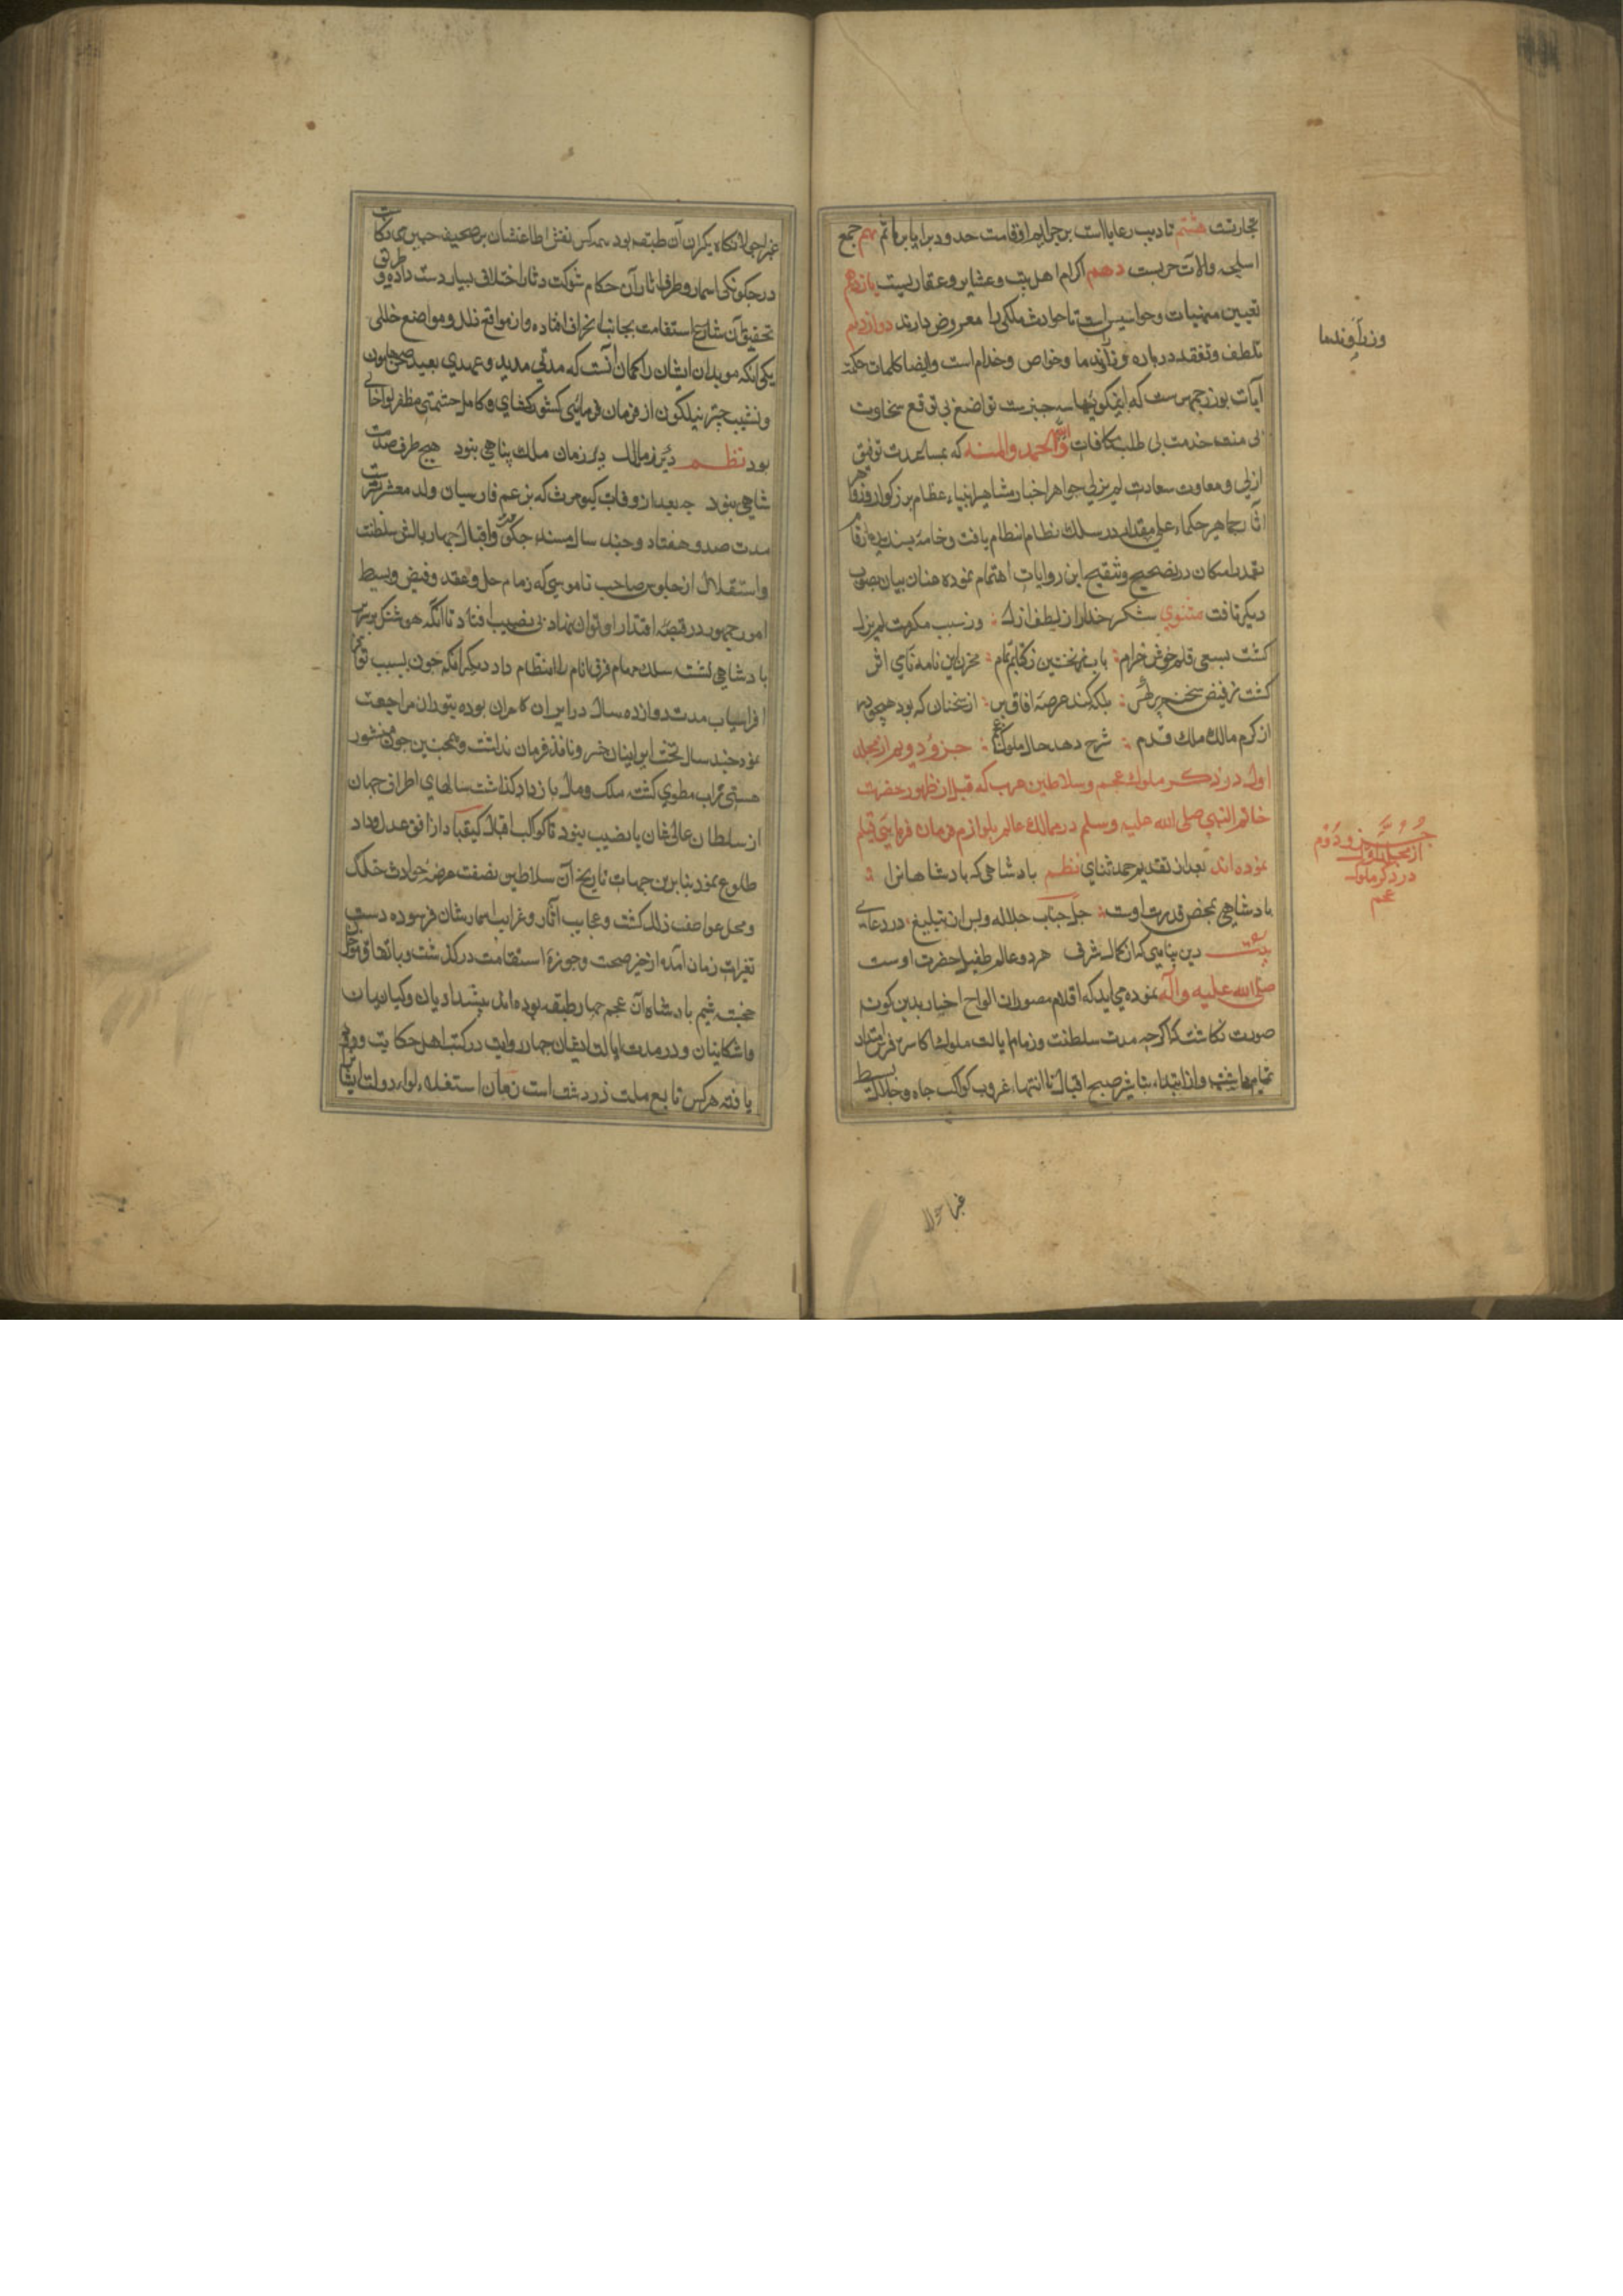 تجارتست هشتم تادیب رعایا است بر جرایم و اقامت حدود برایا بر مآثم نهم جمع
اسلحه و الات حربست دهم اکرام اهل بیت و عشایر و عقاربست یازدهم
تعیین منهیات و جواسیس است تا حوادث ملکی را معروض دارند دوازدهم
تلطف و تفقد در باره وزرا و ندما و خواص و خدام است و ایضا کلمات حکمة
آیات بوزرجمهرست که نیکوئیها سه چیزست تواضع بی توقع سخاوت
بی منت خدمت بی طلب مکافات و لله الحمد و المنه که بمساعدت توفیق
ازلی و معاونت سعادت لم یزلی جواهر اخبار مشاهیر انبیاء عظام بزرکوار و زواهر
آثار جماهیر حکماء عالی مقدار در سلک نظام انتظام یافت و خامهٔ پسندیده ارقام
بقدر امکان در تصحیح و تنقیح این روایات اهتمام نموده عنان بیان بصوب
دیکر تافت مثنوی شکر خدا را از لطف ازل وز سبب مکرمت لم یزل
کشت بسعی قلم خوش خرام باب نخستین ز کتابم تمام مخزن این نامه نامی اثر
کشت ز فیض سخنم پر کهر بلکه کند عرصه افاق پر از سخنان که بود همچو در
از کرم مالک ملک قدم شرح دهد حال ملوک عجم جزو دویم از مجلد
اول در ذکر ملوک عجم و سلاطین عرب که قبل از ظهور حضرت
خاتم النبی صلی الله علیه وسلم در ممالک عالم بلوازم فرمان فرمایی قیام
نموده اند بعد از تقدیم حمد ثنای نظم بادشاهی که بادشاهانرا
بادشاهی بمحض قدرت اوست جل جناب جلاله و پس از تبلیغ درود عالی
بیت دین پناهی که از کمال شرف هر دو عالم طفیل حضرت اوست
صلی الله علیه و آله نموده می اید که اقلام مصوران الواح اخبار بدین کونه
صورت نکاشته که اکرچه مدت سلطنت و زمام ایالت ملوک اکاسره
و از ابتداء تباشیر صبح اقبال تا انتهاء غروب کواکب جاه و جلال بسیط
وزرا و ندما
جزو دوم
از مجلد اول
در ذکر ملوک
عجم
غبرا جولانکاه یکران آن طبقه بود همه کس نقش اطاعتشان بر صحیفه
در چکونکی اسمار و طرف اثار آن حکام شوکت دثار اختلاف بسیار دست داده و طریق
تحقیق آن شارع استقامت بجانب انحراف افتاده و از مواقع زلل و مواضع خللی
یکی انکه موبدان ایشان را کمان آنست که مدتی مدید و عهدی بعید
و نشیب چتر نیلکون از فرمان فرمائی کشور کشای و کامل حشمتی مظفر لوا خالی
بود نظم دیر زمان ملک پناهی نبود هیچ طرف
شاهی نبود چه بعد از وفات کیومرث که بزعم فارسیان ولد معشر
مدت صد و هفتاد و چند سال مسند حکومت و اقبال چهار بالش سلطنت
و استقلال از جلوس صاحب ناموسی که زمام حل و عقد و قبض و بسط
امور جمهور در قبضه اقتدار او توان نهاد بی نصیب افتاد تا انکه هوشنک بر سریر
بادشاهی نشسته سلک مهام فرق انام را انتظام داد دیکر انکه چون بسبب
افراسیاب مدت دوازده سال در ایران کامران بوده بتوران مراجعت
نمود چند سال تخت ایران ایشان خسرو نافذ فرمان نداشت و همچنین چون منشور
هستی کرشاسب مطوی کشته ملک و مال باز کذاشت سالهای اطراف جهان
از سلطان عالی شان بانصیب نبود تا کوکب اقبال کیقباد از افق عدل و داد
طلوع نمود بنا برین جهات تاریخ آن سلاطین نصفت عرضه حوادث
و محل عواصف زلل کشت و عجایب آثار و غرایب اسمارشان فرسوده دست
تغیرات زمان آمده از حیز صحت و حوزهٔ استقامت در کذشت و باتفاق
خجسته شیم بادشاهان عجم چهار طبقه بوده اند پیشدادیان و کیانیان
و اشکانیان و در مدت ایالت ایشان چهار روایت در کتب اهل حکایت
یافته هرکس تابع ملت زردشت است زمان استعلاء لواء دولت ایشان
غبرا جولا